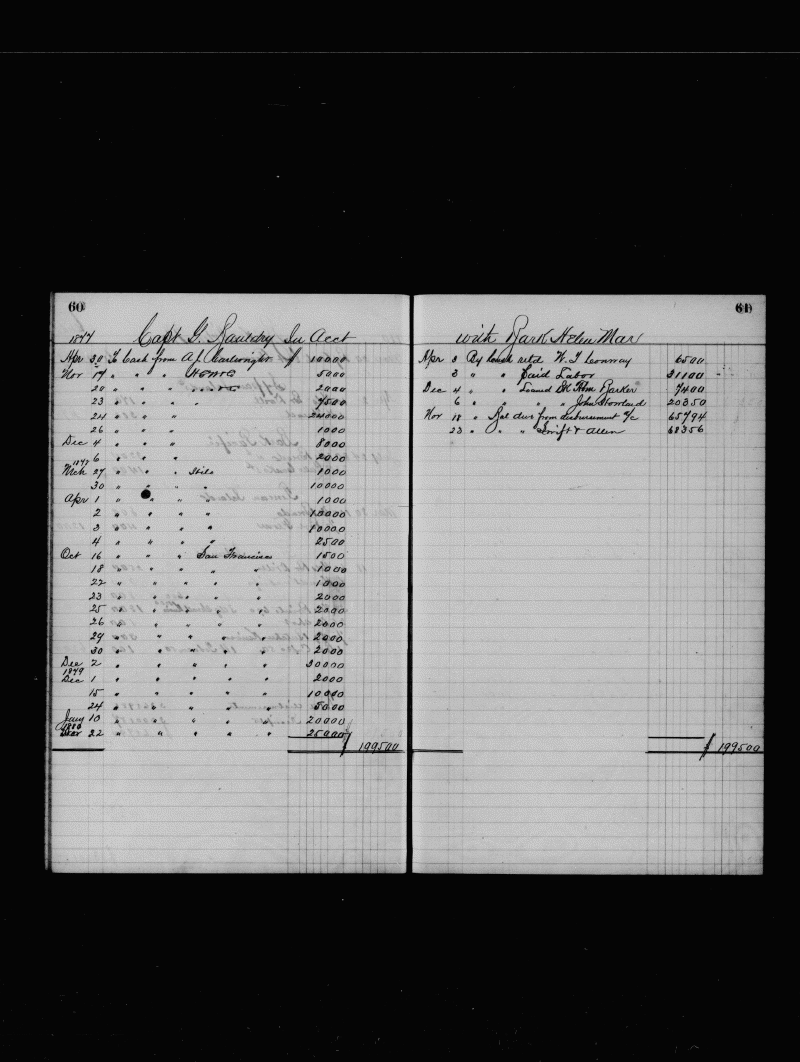 60
1877 Capt G. Bauldry In Acct
Apr 30 To Cash from A J Cartwright $ 10000
Nov 17 " " " 5000
20 " " " 2000
23 " " " 7500
24 " " " 24000
26 " " " 1000
Dec 4 " " " 8000
6 " " " 2000
Mch 27 " " " Hilo 1000
30 " " " " 10000
Apr 1 " " " 1000
2 " " " " 10000
3 " " " " 10000
4 " " " " 2500
Oct 16 " " " San Francisco 1500
18 " " " " " 1000
22 " " " " " 1000
23 " " " " " 2000
25 " " " " " 2000
26 " " " " " 2000
29 " " " " " 2000
30 " " " " " 2000
Dec 2 " " " " " 30000
1879
Dec 1 " " " " " 2000
15 " " " " " 10000
24 " " " " " 5000
Jany 10 " " " " 20000
1880
22 " " " " " 25000
$ 199500
61
with Bark Helen Mar
Apr 3 By Cash retd W. J 6500
3 " " Paid Labor 31100
Dec 4 " " Loaned Bk Barker 7400
6 " " " " John Howland 20350
Nov 18 " Bal due from disbursement a/c 65794
23 " " " Swift & Allen 68356
$ 199500